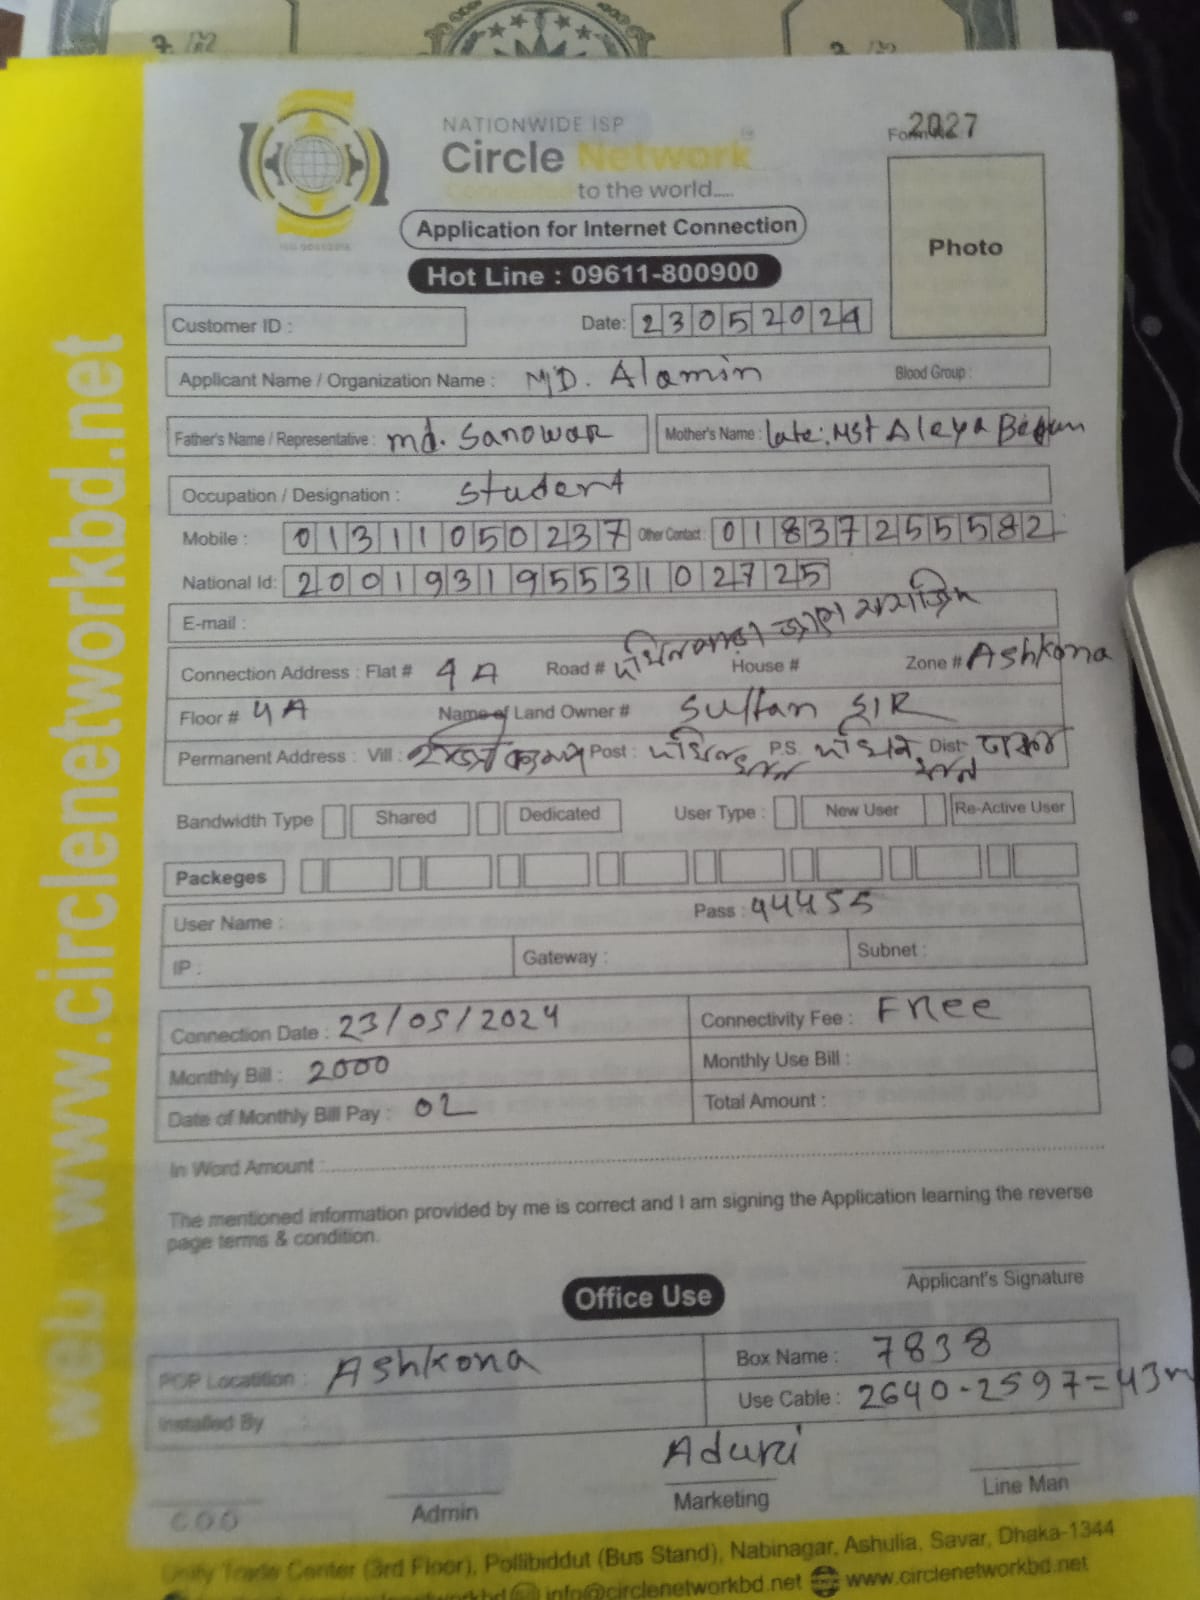 NATIONWIDE ISP
Circle Network
Connected to the world.....
Form No 2027
Application for Internet Connection
Hot Line : 09611-800900
Photo
Customer ID :
Date: 23052024
Applicant Name / Organization Name : MD. Alamin Blood Group :
Father's Name / Representative : md. Sanowar Mother's Name : late: Mst Aleya Begum
Occupation / Designation : Student
Mobile : 01311050237 Other Contact : 01837255582
National Id: 20019319553102725
E-mail :
Connection Address : Flat # 4A Road # House # Zone # Ashkona
Floor # 4A Name of Land Owner # Sultan SIR
Permanent Address : Vill : Post : P.S. Dist-
Bandwidth Type Shared Dedicated User Type : New User Re-Active User
Packeges
User Name : Pass : 44455
IP : Gateway : Subnet :
Connection Date : 23/05/2024 Connectivity Fee : Free
Monthly Bill : 2000 Monthly Use Bill :
Date of Monthly Bill Pay : 02 Total Amount :
In Word Amount :
The mentioned information provided by me is correct and I am signing the Application learning the reverse
page terms & condition.
Applicant's Signature
Office Use
POP Locatition : Ashkona Box Name : 7838
Installed By : Use Cable : 2640-2597=43m
Aduri
COO Admin Marketing Line Man
Unity Trade Center (3rd Floor), Pollibiddut (Bus Stand), Nabinagar, Ashulia, Savar, Dhaka-1344
info@circlenetworkbd.net www.circlenetworkbd.net
web: www.circlenetworkbd.net